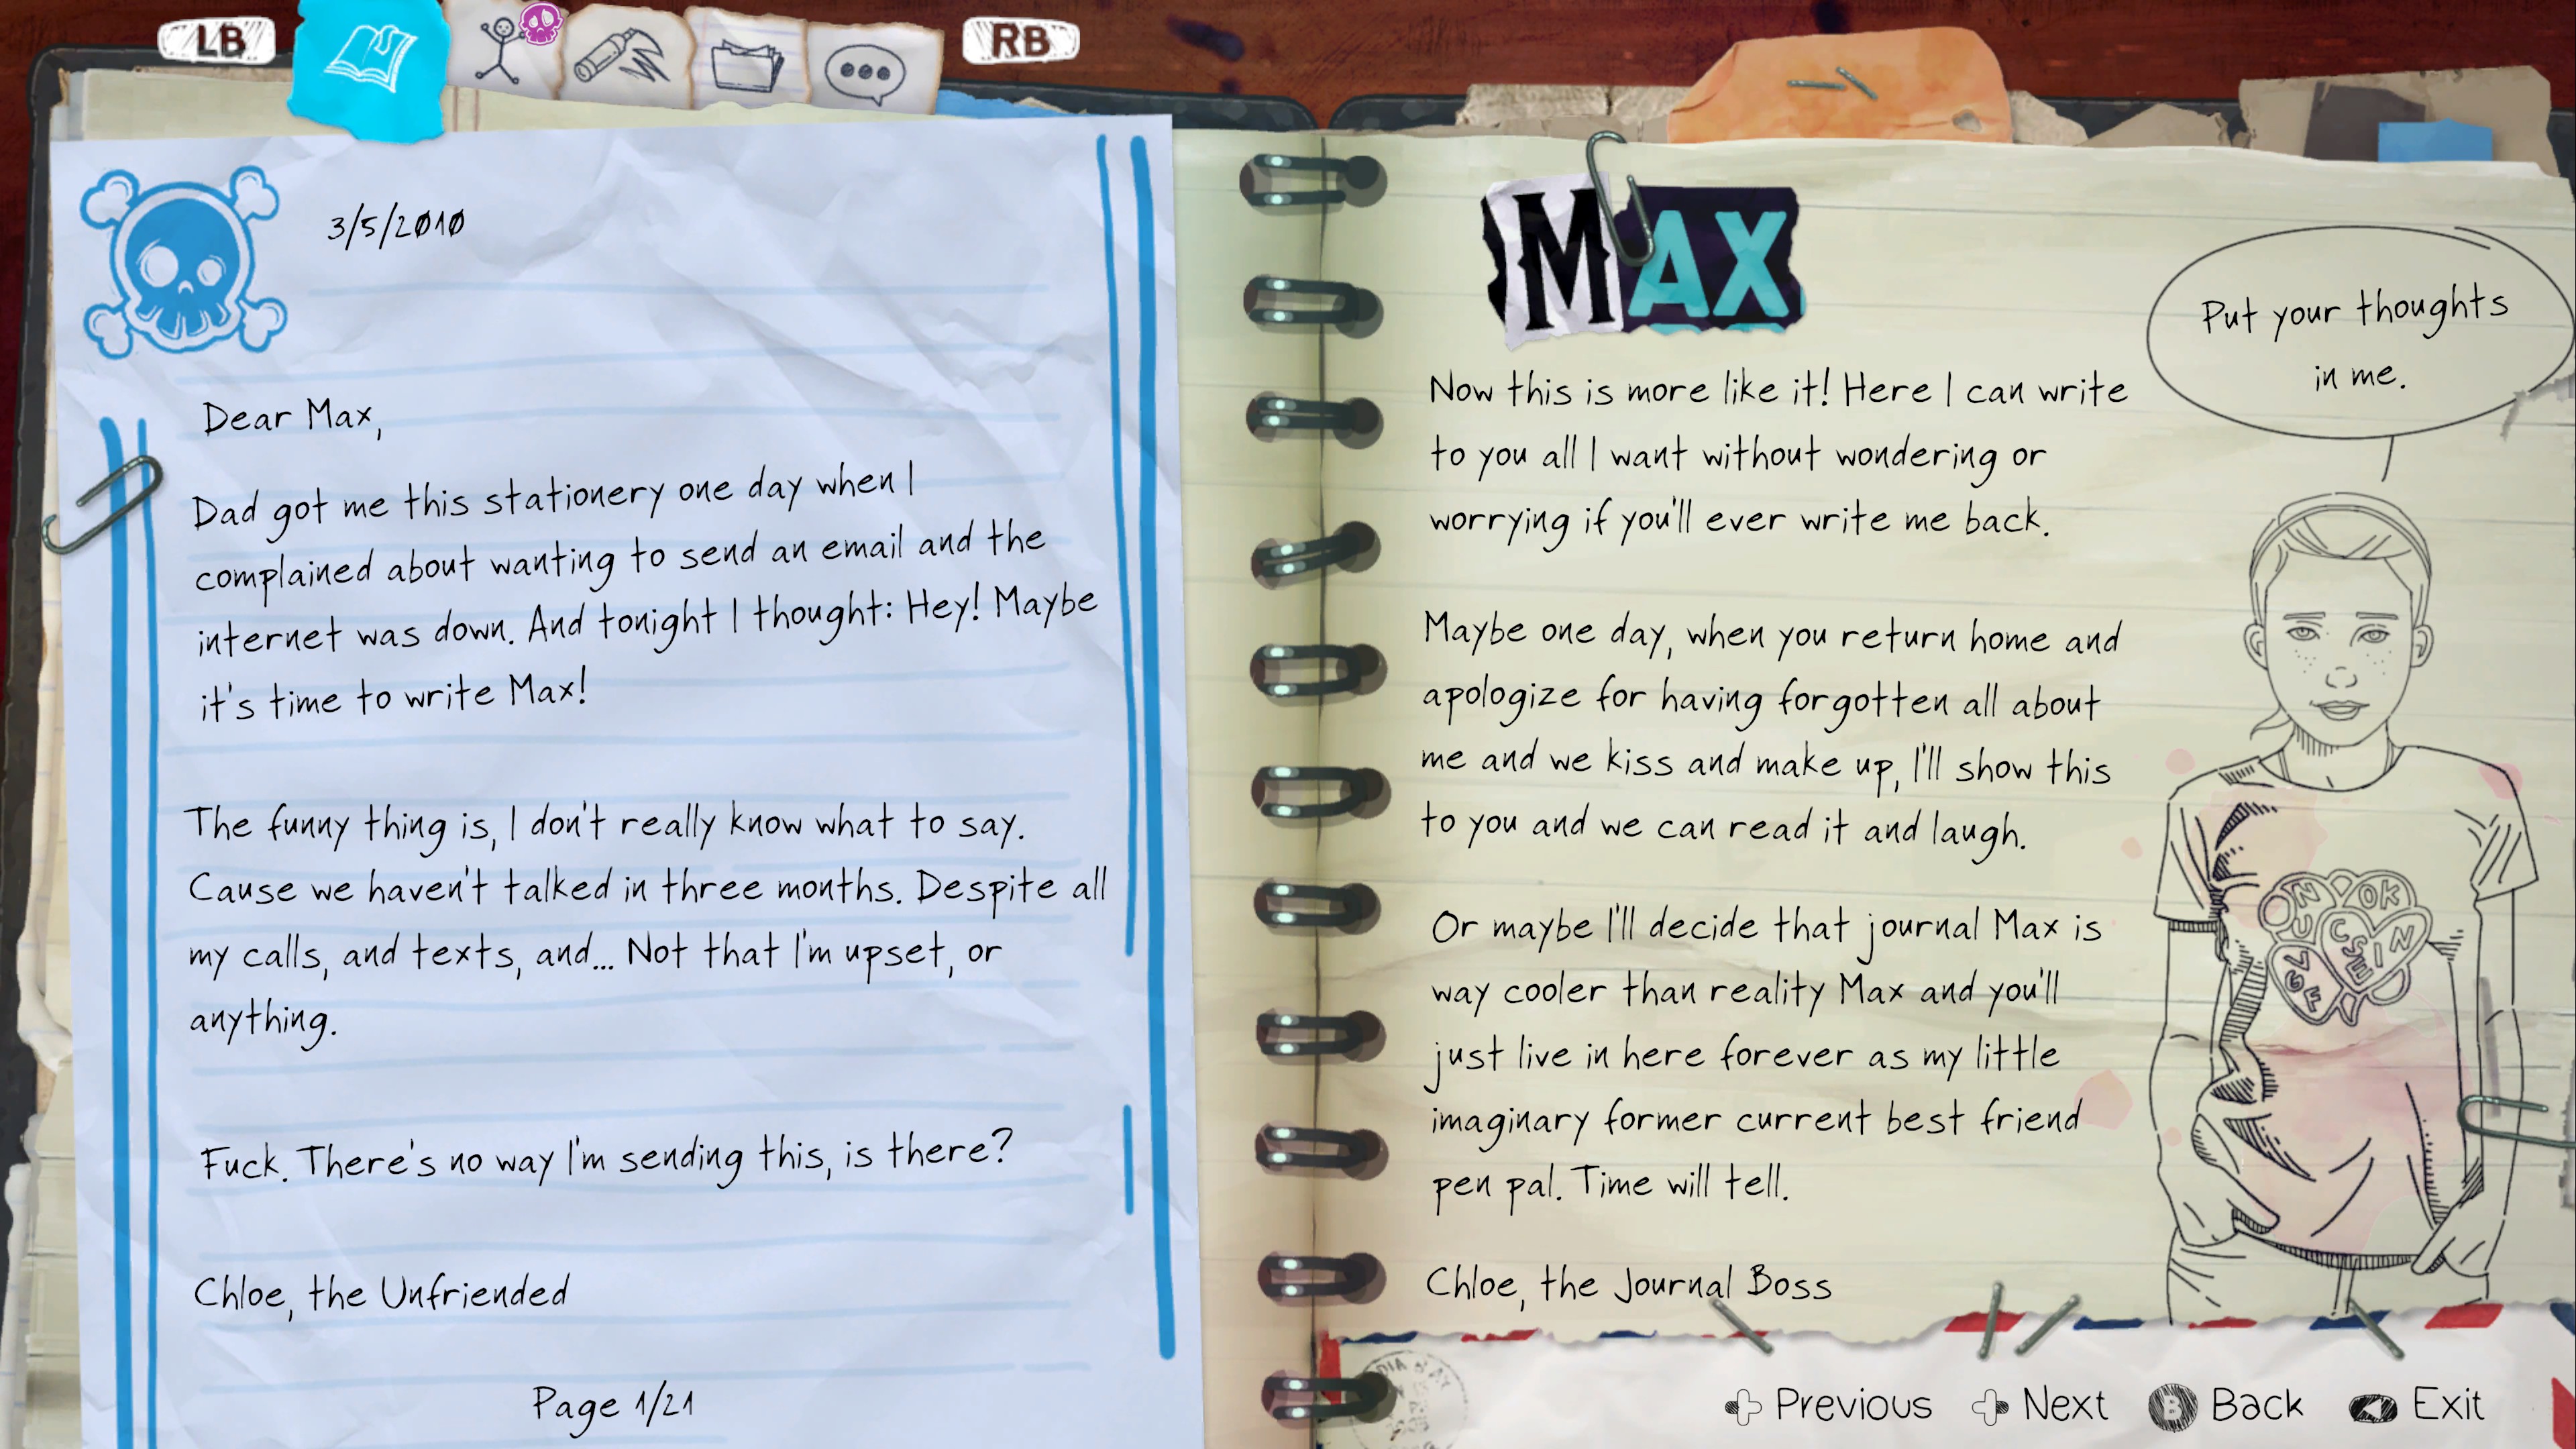 LB
RB
3/5/2010
Dear Max,
Dad got me this stationery one day when I
complained about wanting to send an email and the
internet was down. And tonight I thought: Hey! Maybe
it's time to write Max!
The funny thing is, I don't really know what to say.
Cause we haven't talked in three months. Despite all
my calls, and texts, and... Not that I'm upset, or
anything.
Fuck. There's no way I'm sending this, is there?
Chloe, the Unfriended
Page 1/21
MAX
Put your thoughts
in me.
Now this is more like it! Here I can write
to you all I want without wondering or
worrying if you'll ever write me back.
Maybe one day, when you return home and
apologize for having forgotten all about
me and we kiss and make up, I'll show this
to you and we can read it and laugh.
Or maybe I'll decide that journal Max is
way cooler than reality Max and you'll
just live in here forever as my little
imaginary former current best friend
pen pal. Time will tell.
Chloe, the Journal Boss
Previous
Next
B Back
Exit